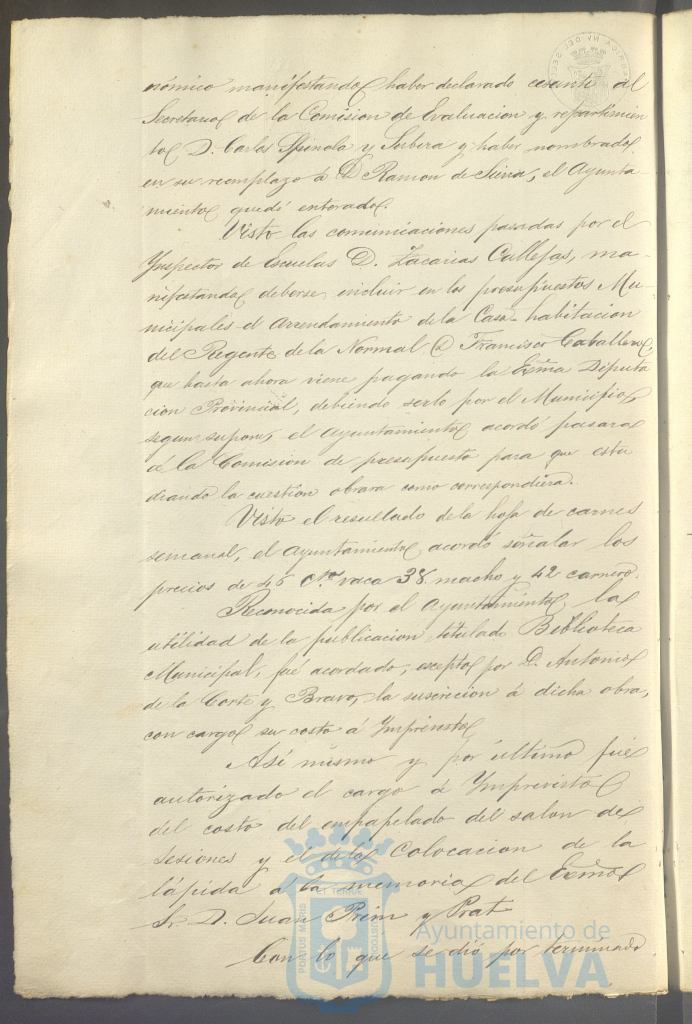 nómico manifestando haber declarado cesante al
Secretario de la Comision de Evaluacion y repartimien
to D. Carlos Spinola y Subera y haber nombrado
en su reemplazo á D. Ramon de Siena, el Ayunta-
miento quedó enterado.
Visto las comunicaciones pasadas por el
Ynspector de Escuelas D. Zacarias Callejas, ma-
nifestando deberse incluir en los presupuestos Mu-
nicipales el arrendamiento de la Casa-habitacion
del Regente de la Normal D. Francisco Caballero,
que hasta ahora viene pagando la Exma Diputa
cion Provincial, debiendo serlo por el Municipio,
segun supone, el Ayuntamiento acordó pasara
á la Comision de presupuesto para que estu
diando la cuestion obrara como correspondiera.
Visto el resultado de la hoja de carnes
semanal, el Ayuntamiento acordó señalar los
precios de 46 Cos vaca 38 macho y 42 carnero.
Reconocida por el Ayuntamiento la
utilidad de la publicacion titulada Biblioteca
Municipal, fué acordado, escepto por D. Antonio
de la Corte y Bravo, la suscricion á dicha obra,
con cargo su costo á Ymprevisto
Asi mismo y por último fué
autorizado el cargo á Ymprevisto
del costo del empapelado del salon de
Sesiones y el de la Colocacion de la
lápida á la memoria del Exmo
Sr. D. Juan Prim y Prat
Con lo que se dió por terminado
PORTUS MARIS
ET TERRAE
CUSTODIA
Ayuntamiento de
HUELVA